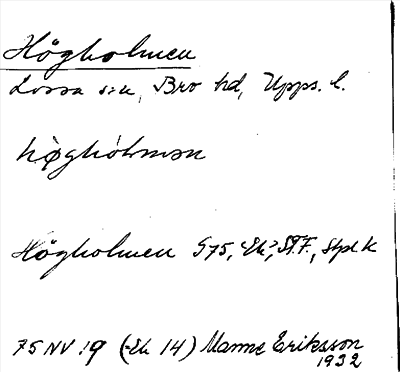 Högholmen
Lossa sn, Bro hd, Upps. l.
hø̀ghòlmən
Högholmen S75, "Ek", ST.F., Spl K
75 NV 19 (-Ek 14) Manne Eriksson
1932